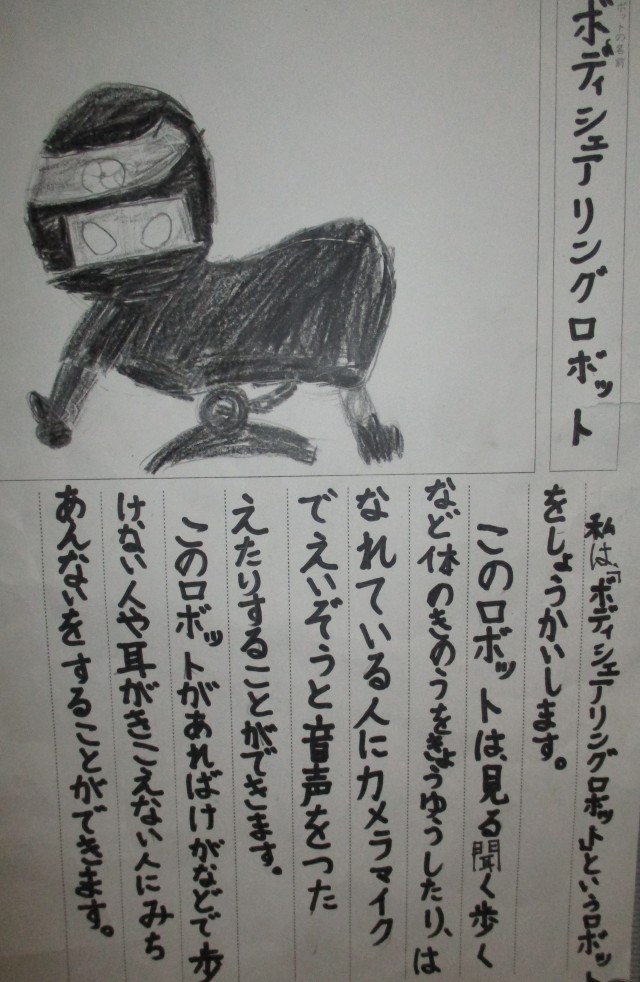 ボットの名前
ボディシェアリングロボット
私は、「ボディシェアリングロボット」というロボット
をしょうかいします。
このロボットは、見る聞く歩く
など体のきのうをきょうゆうしたり、は
なれている人にカメラマイク
でえいぞうと音声をつた
えたりすることができます。
このロボットがあればけがなどで歩
けない人や耳がきこえない人にみち
あんないをすることができます。